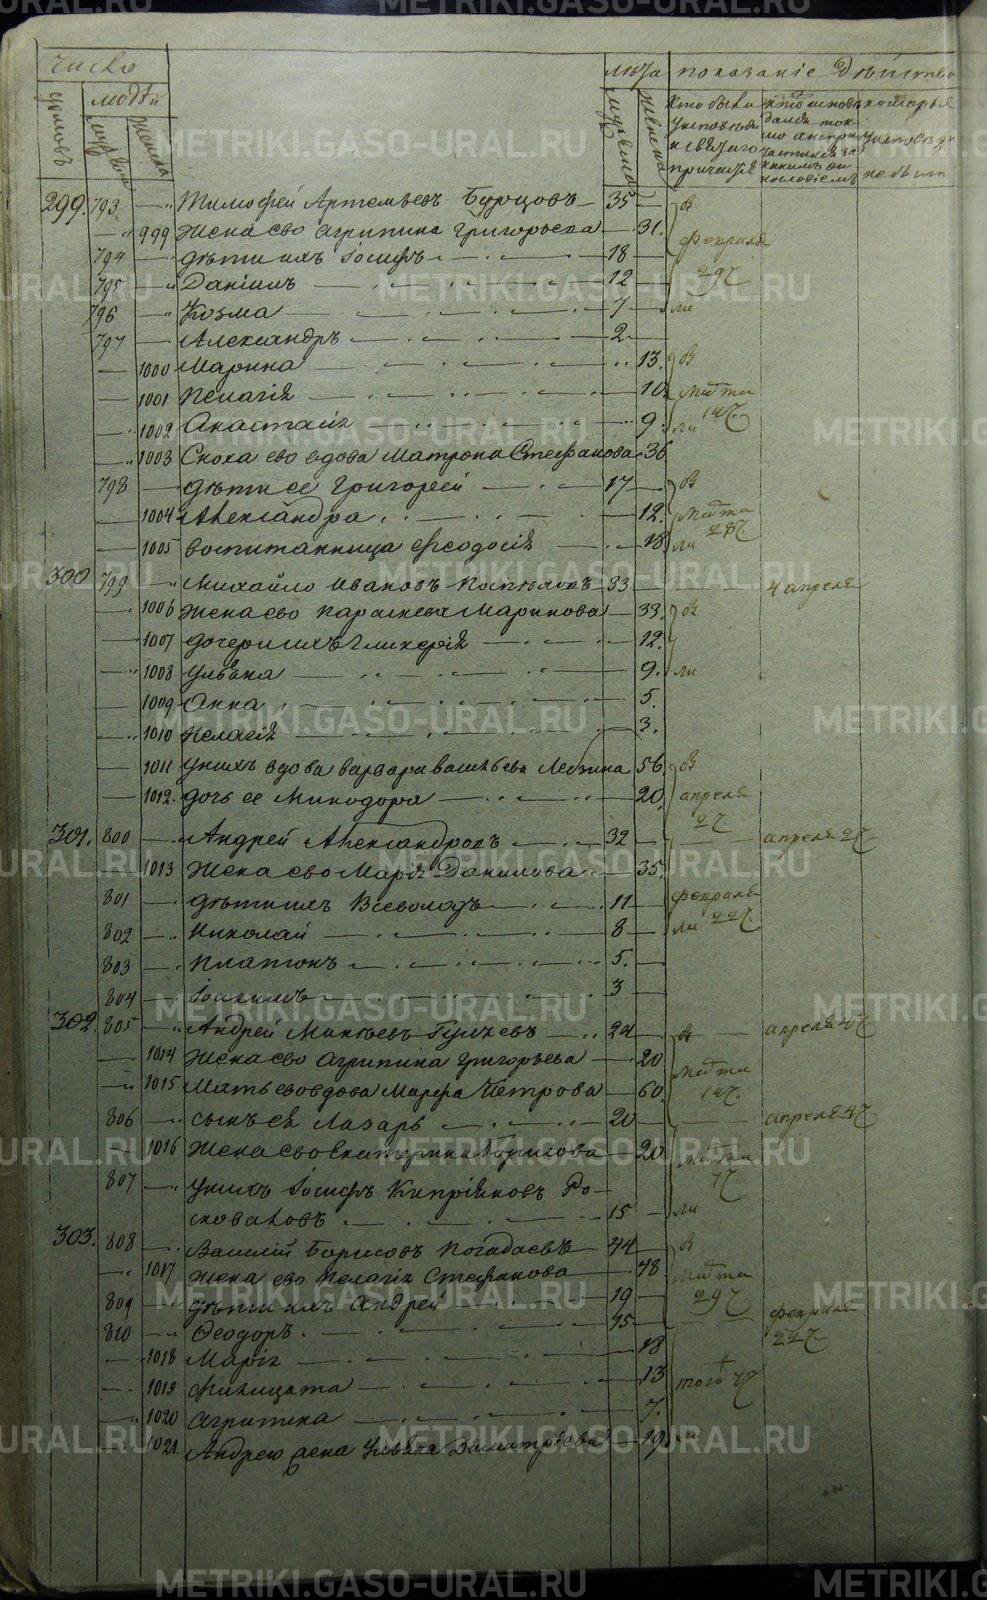 число лѣта показаніе дѣйства
домовъ людей мужеска женска мужеска женска Кто были у исповѣди и святаго причастія кто исповѣдался токмо а непричастился и за какимъ винословіемъ которые у исповѣди не были
299. 793 Тимофей Артемьевъ Бурцовъ 35 въ
999 Жена его Агрипина Григорьева 31. февраля
794 дѣти ихъ Іосифъ 18 29
795 Даніилъ 12
796 Козма 7 ли
797 Александръ 2
1000 Марина 13. въ
1001 Пелагія 10 марта
1002 Анастасія 9. ли 14
1003 Сноха его вдова Матрона Стефанова 36
798 дѣти ее Григорей 17 въ
1004 Александра 12. марта
1005 воспитанница Феодосія 18 ли 28
300 799 Михайло Ивановъ 33 4 апреля
1006 жена его Параскева Маринова 33. въ
1007 дочери ихъ Гликерія 12.
1008 Ульяна 9. ли
1009 Анна 5.
1010 Пелагія 3.
1011 у нихъ вдова Варвара Васильева 56 въ
1012. дочь ее Минодора 20. апреля
2
301. 800 Андрей Александровъ 32 апреля 2
1013 Жена его Марія Данилова 35.
801 дѣти ихъ Всеволодъ 11 февраля
802 Николай 8 ли 22
803 Платонъ 5.
804 Іоакимъ 3
302. 805 Андрей 24 въ апреля 4
1014 Жена его Агрипина Григорьева 20 марта
1015 Мать его вдова Марфа Петрова 60. 14.
806 сынъ ея Лазарь 20 апреля
1016 Жена его Екатерина Борисова 20. марта
807 у нихъ Іосифъ Кипріяновъ Ро-
сковаловъ 15 ли
303. 808 Василій Борисовъ Погадаевъ 44 въ
1017 Жена его Пелагія Стефанова 48 марта
809 дѣти ихъ Андрей 19 29 февраля
810 Феодоръ 15 22
1018 Марія 18
1019 Филицата 13 того
1020 Агрипина 7.
1021. Андрею жена Ульяна Димитріева 19. ли
METRIKI.GASO-URAL.RU